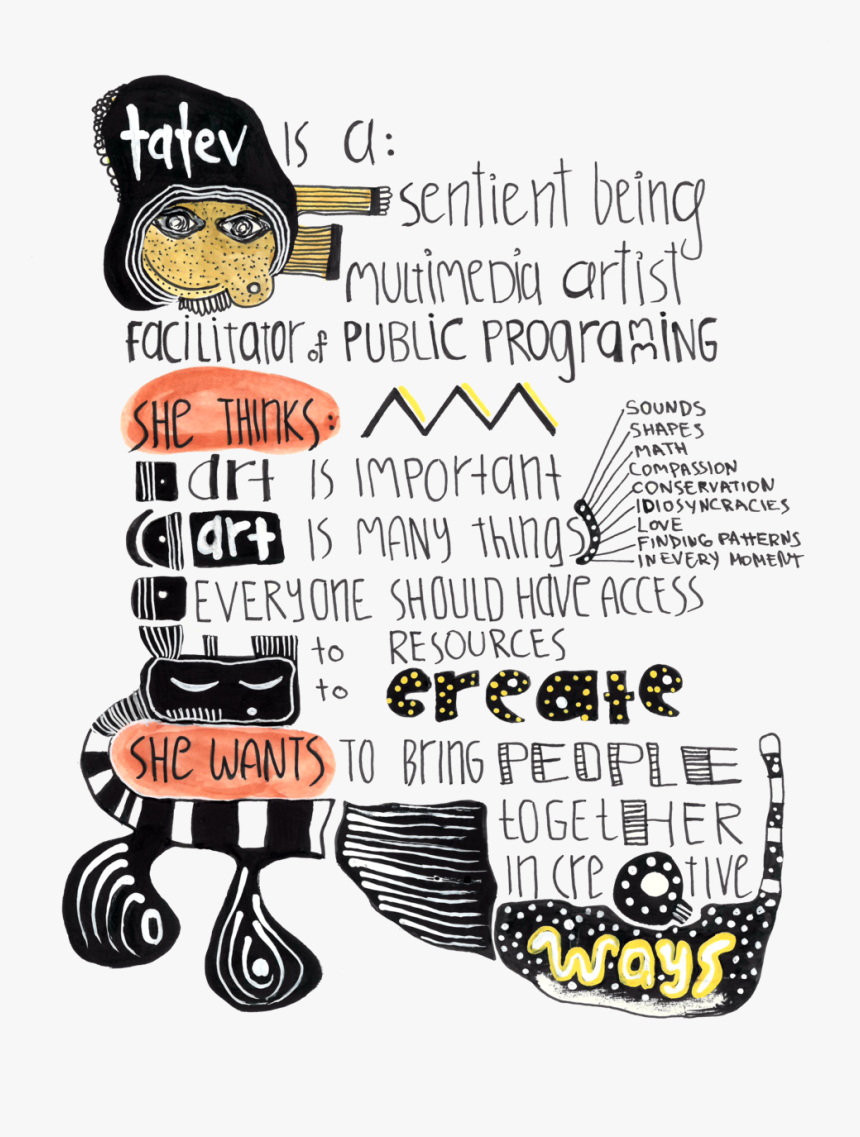 tatev is a:
sentient being
multimedia artist
facilitator of PUBLIC PROGRAMMING
SHE THINKS:
art is IMPORtant
art is MANY things
SOUNDS
SHAPES
MATH
COMPASSION
CONSERVATION
IDIOSYNCRACIES
LOVE
FINDING PATTERNS
IN EVERY MOMENT
EVERYONE SHOULD HAVE ACCESS
to RESOURCES
to create
SHE WANTS TO BRING PEOPLE
toGEtHER
in creative
ways